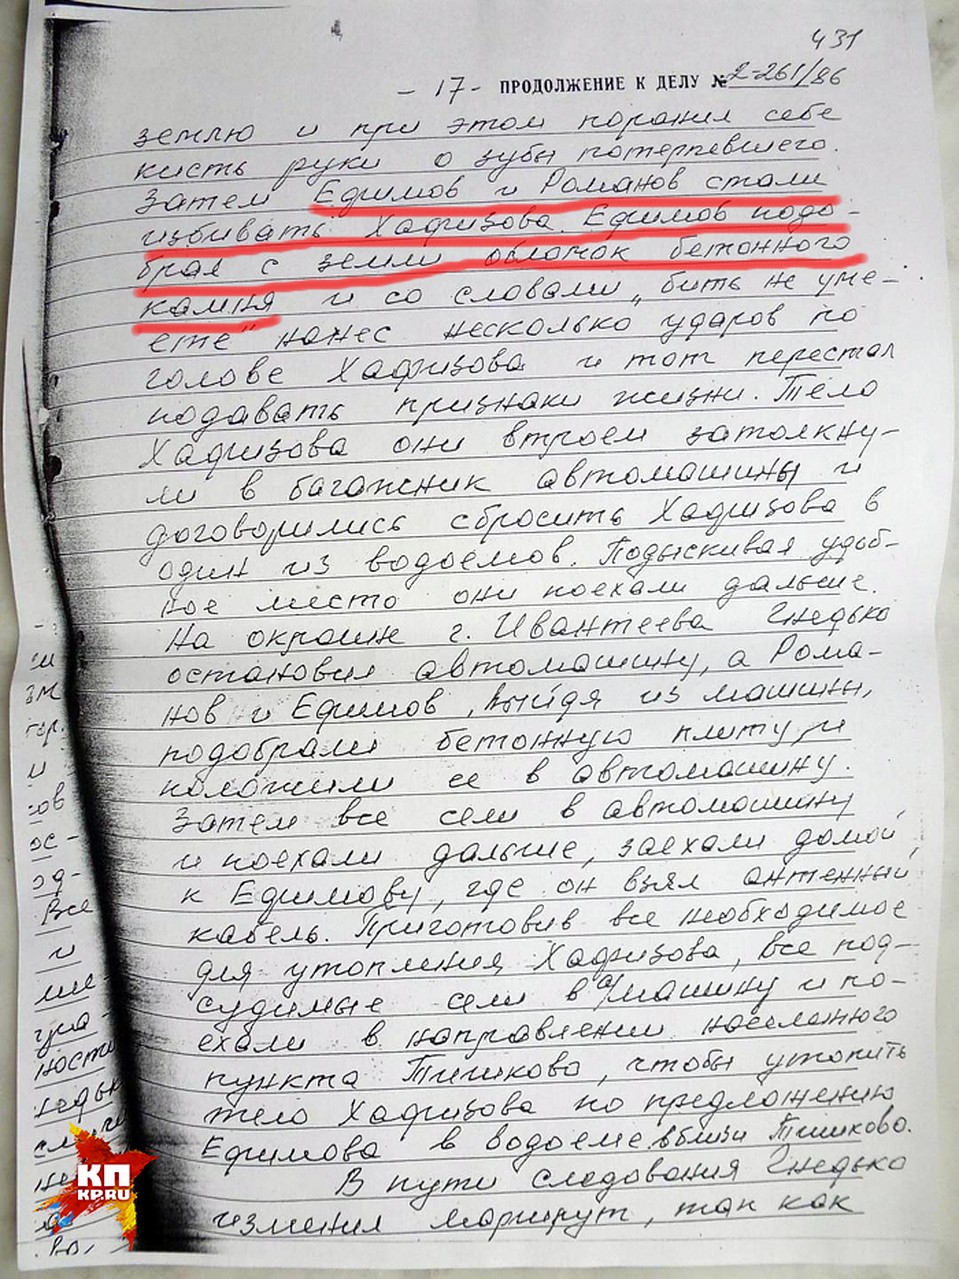 431
- 17 - ПРОДОЛЖЕНИЕ К ДЕЛУ № 2-261/86
землю и при этом поранил себе
кисть руки о зубы потерпевшего.
Затем Ефимов и Романов стали
избивать Хафизова. Ефимов подо-
брал с земли обломок бетонного
камня и со словами „бить не уме-
ете" нанес несколько ударов по
голове Хафизова и тот перестал
подавать признаки жизни. Тело
Хафизова они втроем затолкну-
ли в багажник автомашины и
договорились сбросить Хафизова в
один из водоемов. Подыскивая удоб-
ное место они поехали дальше.
На окраине г. Ивантеева Гнедько
остановил автомашину, а Рома-
нов и Ефимов, выйдя из машины,
подобрали бетонную плиту и
положили ее в автомашину.
Затем все сели в автомашину
и поехали дальше, заехали домой
к Ефимову, где он взял антенный
кабель. Приготовив все необходимое
для утопления Хафизова, все под-
судимые сели в а/машину и по-
ехали в направлении населенного
пункта Тишково, чтобы утопить
тело Хафизова по предложению
Ефимова в водоеме вблизи Тишково.
В пути следования Гнедько
изменил маршрут, так как
и
ов
ос-
од-
Все
и
ши-
КП
KP.RU